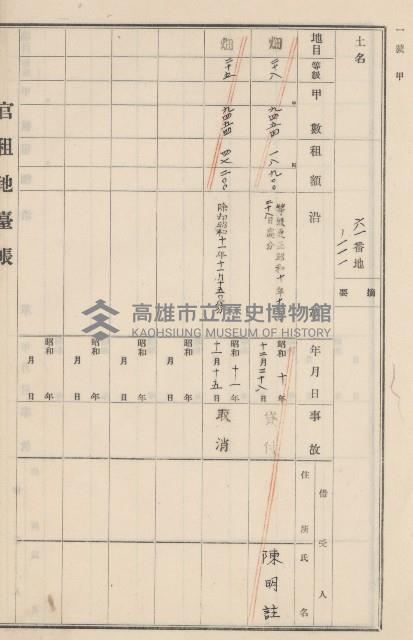 一號甲
土名
六一番地
摘要
地目
等級
甲數
租額
沿
年月日
事故
借受人
住所
氏名
畑
二十八
九四五四
一八九〇〇
等級更正昭和十年十
二月二十八日處分
昭和十年
十二月二十八日
貸付
陳明註
畑
二十五
九四五四
四七二〇〇
除却昭和十一年十一月十五日處分
昭和十一年
十一月十五日
取消
昭和年
月日
昭和年
月日
昭和年
月日
昭和年
月日
官租地臺帳
高雄市立歷史博物館
KAOHSIUNG MUSEUM OF HISTORY